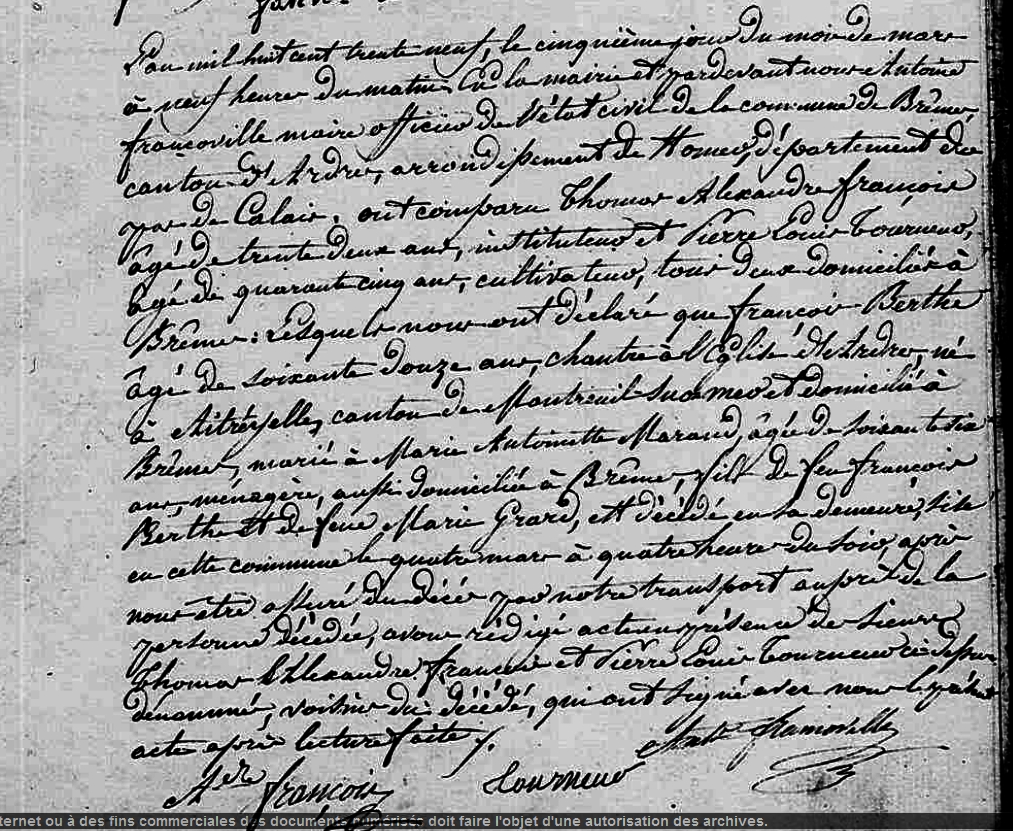 L'an mil huit cent trente neuf, le cinquième jour du mois de mars
à neuf heures du matin en la mairie et pardevant nous Antoine
francoville maire officier de l'état civil de la commune de Brêmes,
canton d'Ardres, arrondissement de St omer, département du
pas de Calais. ont comparu Thomas Alexandre françois
âgé de trente deux ans, instituteur et Pierre Louis Tourneur,
âgé de quarante cinq ans, cultivateur, tous deux domiciliés à
Brêmes: lesquels nous ont déclaré que françois Berthe
âgé de soixante douze ans, chantre à l'Eglise d'Ardres, né
à canton de Montreuil sur mer et domicilié à
Brêmes, marié à Marie Antoinette Marand, âgée de soixante six
ans, ménagère, aussi domiciliée à Brêmes, fils de feu françois
Berthe et de feue Marie Grard, est décédé en sa demeure, sise
en cette commune le quatre mars à quatre heures du soir, après
nous être assuré du décès par notre transport auprès de la
personne décédée, avons rédigé acte en présence des sieurs
Thomas Alexandre françois et Pierre Louis Tourneur ci dessus
dénommés, voisins du décédé, qui ont signé avec nous le présent
acte après lecture faite.
Adre françois Tourneur
nternet ou à des fins commerciales des documents numérisés doit faire l'objet d'une autorisation des archives.